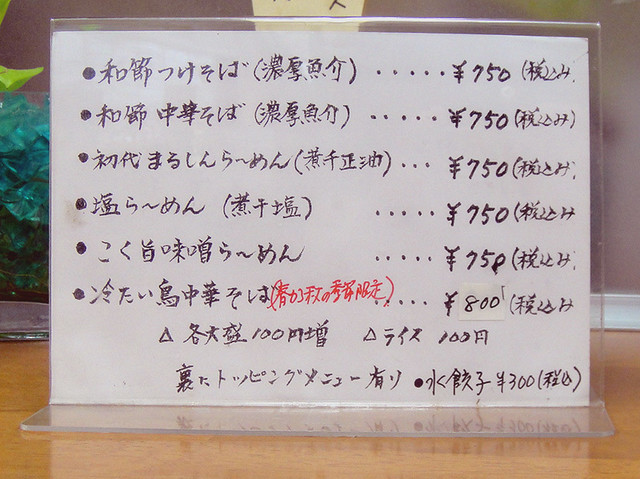 ●和節つけそば(濃厚魚介) ・・・・・ ¥750(税込み)
●和節 中華そば(濃厚魚介) ・・・・・ ¥750(税込み)
●初代まるしんら〜めん(煮干正油) ・・・ ¥750(税込み)
●塩ら〜めん (煮干塩) ・・・・・ ¥750(税込み)
●こく旨味噌ら〜めん ・・・・・ ¥750(税込み)
●冷たい鳥中華そば(春から秋の季節限定) ・・ ¥800(税込み)
△ 各大盛100円増 △ライス 100円
裏にトッピングメニュー有り ●水餃子¥300(税込)